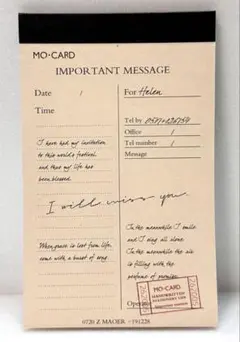 MO·CARD
IMPORTANT MESSAGE
Date /
For Helen
Time
Tel by
Office /
Tel number /
Message
I have had my invitation
to this world's festival,
and thus my life has
been blessed
I will miss you
When grace is lost from life,
come with a burst of song.
In the meanwhile I smile
and I sing all alone.
In the meanwhile the air
is filling with the
perfume of promise
Operator
MO-CARD
HANDWRITTEN
0720 Z MAOER -191228